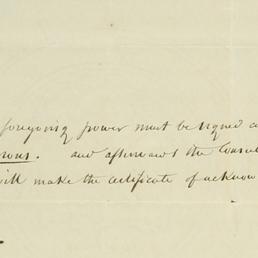 foregoing power must be signed
and afterwards the Consul
will make the certificate of acknow